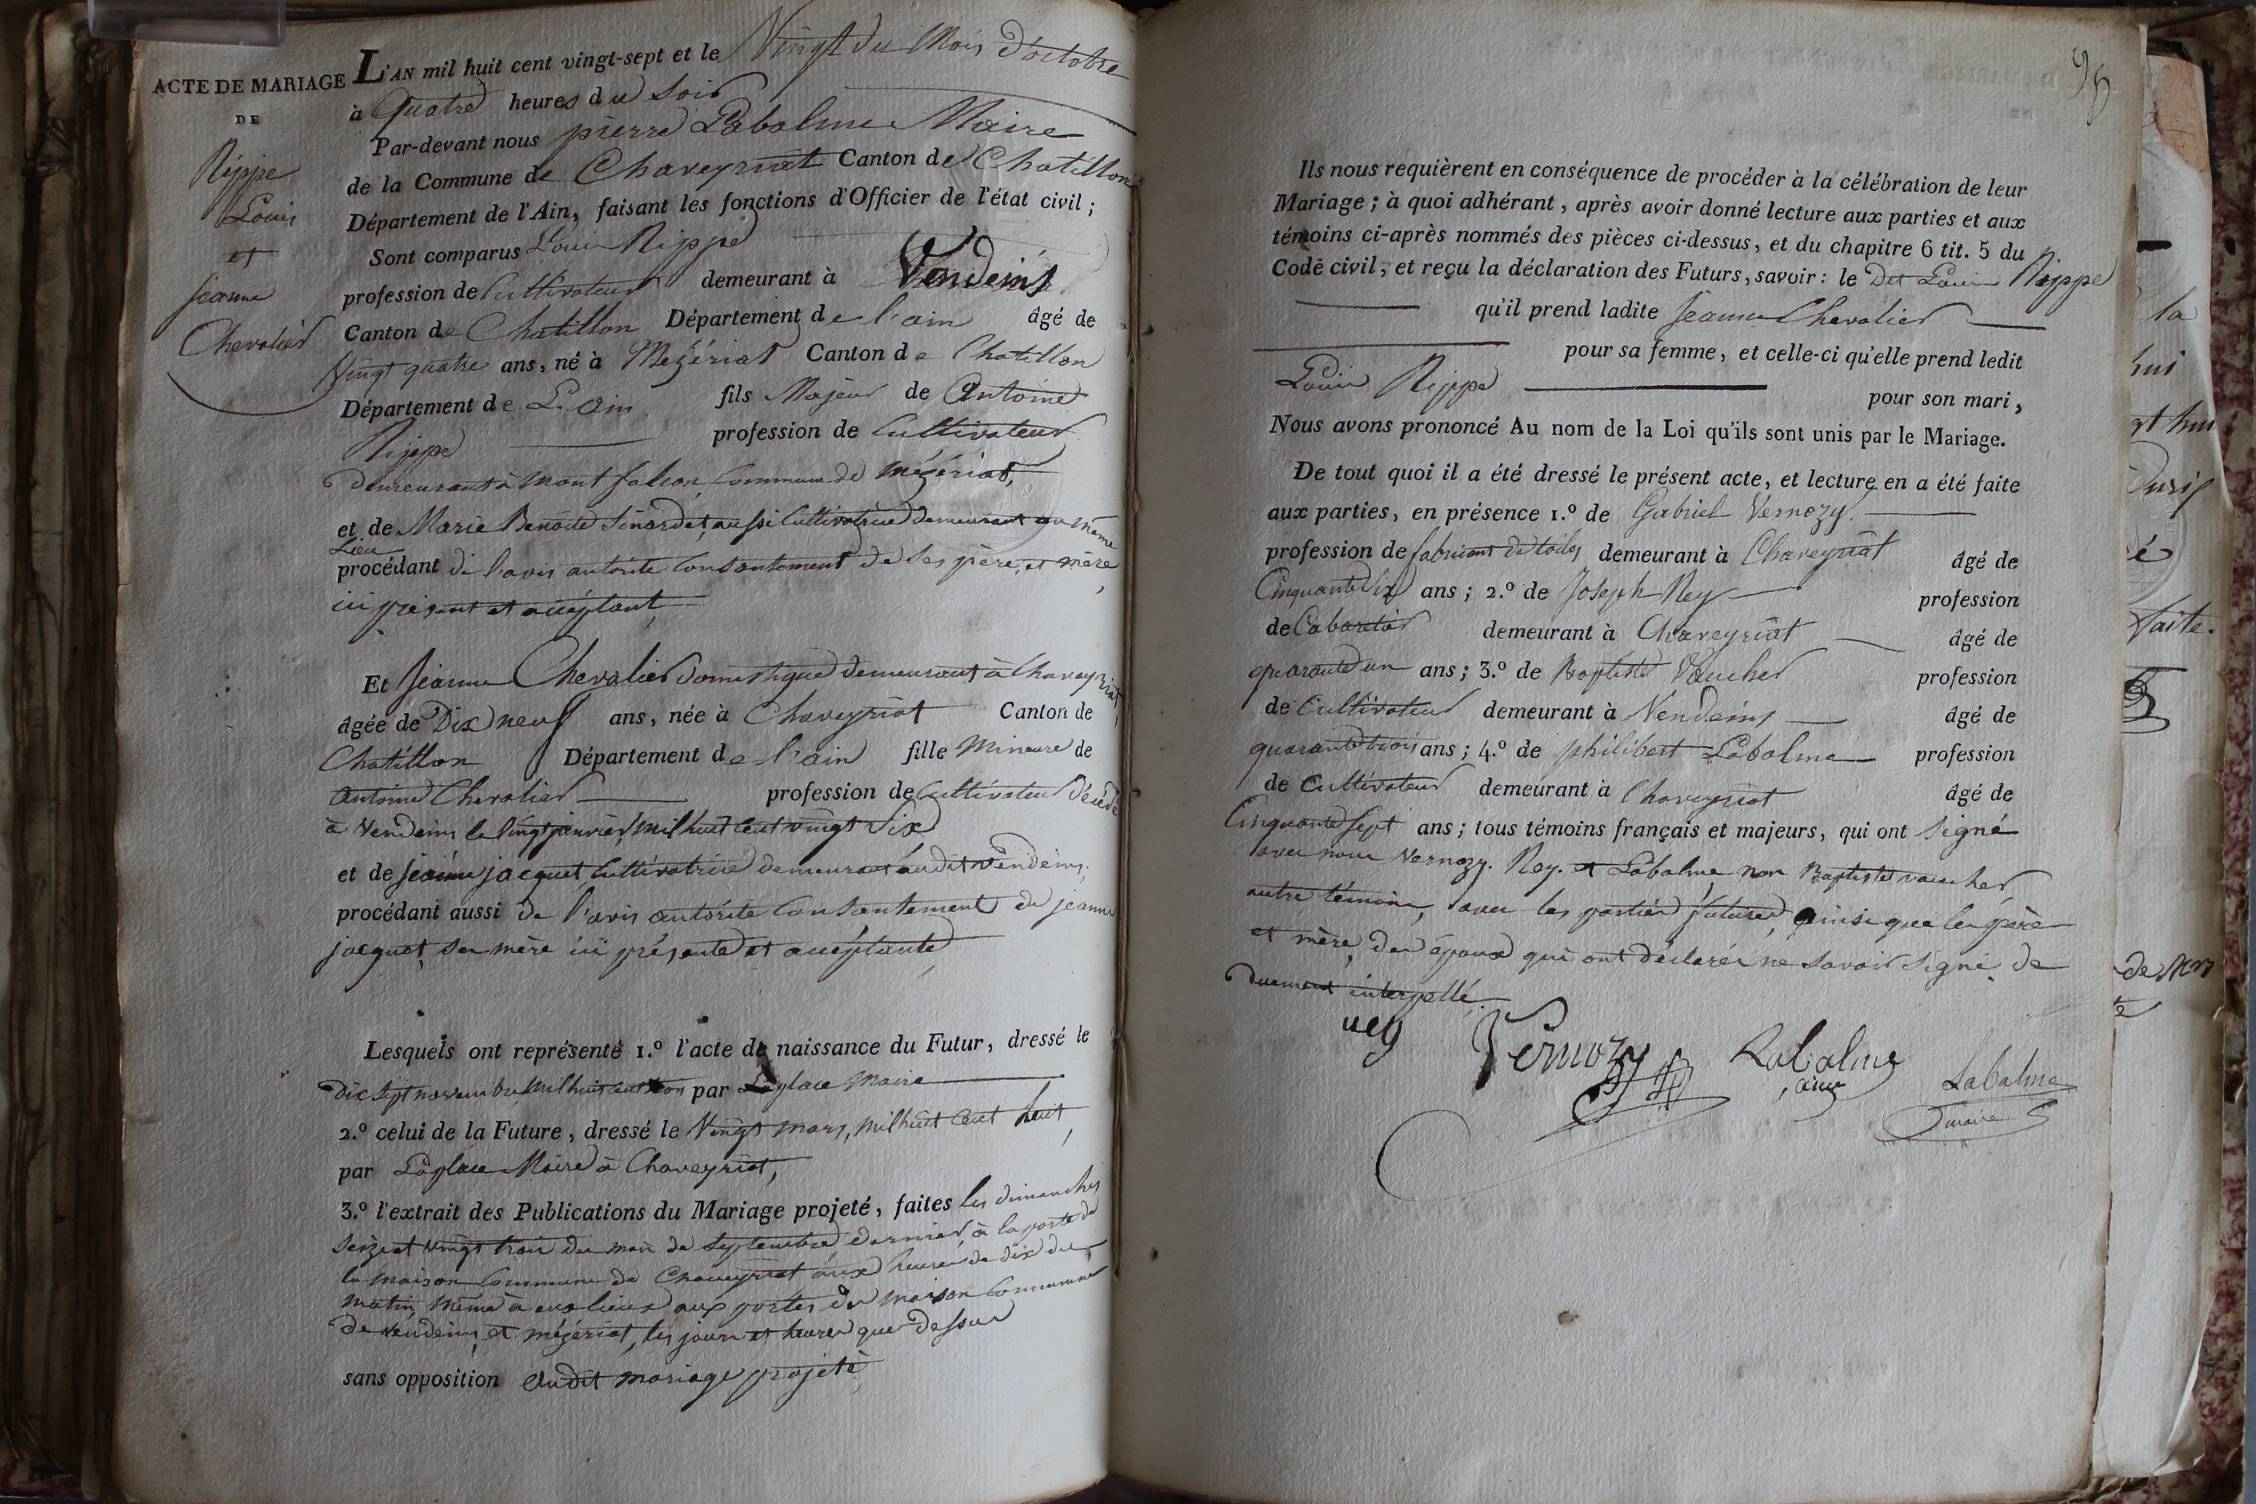 ACTE DE MARIAGE
DE
Rippe
Louis
et
Jeanne
Chevalier
L'AN mil huit cent vingt-sept et le Vingt du Mois d'octobre
à Quatre heures du Soir
Par-devant nous pierre Labalme Maire
de la Commune de Chaveyriat Canton de Chatillon
Département de l'Ain, faisant les fonctions d'Officier de l'état civil ;
Sont comparus Louis Rippe
profession de Cultivateur demeurant à Vendeins
Canton de Chatillon Département de l'ain âgé de
Vingt quatre ans, né à Mezériat Canton de Chatillon
Département de L'ain fils Majeur de Antoine
Rippe profession de Cultivateur
demeurant à mont falcon Commune de mézériat,
et de Marie Benoite Sinardet, aussi Cultivatrice demeurant au même
Lieu
procédant de l'avis autorite Consentement de ses père et mère
ici présent et acceptant
Et Jeanne Chevalier domestique demeurant à Chaveyriat,
âgée de Dix neuf ans, née à Chaveyriat Canton de
Chatillon Département de l'ain fille Mineure de
Antoine Chevalier profession de Cultivateur décédé
à Vendeins le Vingt janvier mil huit cent vingt Six
et de Jeanne jacquet Cultivatrice demeurant audit Vendeins,
procédant aussi de l'avis autorite Consentement de jeanne
jacquet, sa mère ici présente et acceptante
Lesquels ont représenté 1.º l'acte de naissance du Futur, dressé le
Dix Sept novembre Mil huit cent trois par Laplace Maire
2.º celui de la Future, dressé le Vingt mars, Mil huit Cent huit,
par Laplace Maire à Chaveyriat,
3.º l'extrait des Publications du Mariage projeté, faites les dimanches
Seize et Vingt trois du mois de Septembre dernier, à la porte de
la maison Commune de Chaveyriat aux heures de dix du
matin, même à eu lieux aux portes des maison Commune
de Vendeins, et mézériat, les jours et heures que dessus
sans opposition audit mariage projeté
95
Ils nous requièrent en conséquence de procéder à la célébration de leur
Mariage ; à quoi adhérant, après avoir donné lecture aux parties et aux
témoins ci-après nommés des pièces ci-dessus, et du chapitre 6 tit. 5 du
Code civil, et reçu la déclaration des Futurs, savoir : le Dit Louis Rippe
qu'il prend ladite Jeanne Chevalier
pour sa femme, et celle-ci qu'elle prend ledit
Louis Rippe
pour son mari,
Nous avons prononcé Au nom de la Loi qu'ils sont unis par le Mariage.
De tout quoi il a été dressé le présent acte, et lecture en a été faite
aux parties, en présence 1.º de Gabriel Vernozy
profession de fabricant de toiles demeurant à Chaveyriat âgé de
Cinquante Six ans ; 2.º de Joseph Rey profession
de Cabaretier demeurant à Chaveyriat âgé de
quarante un ans ; 3.º de Baptiste Vaucher profession
de Cultivateur demeurant à Vendeins âgé de
quarante trois ans ; 4.º de philibert Labalme profession
de Cultivateur demeurant à Chaveyriat âgé de
Cinquante Sept ans ; tous témoins français et majeurs, qui ont Signé
avec nous Vernozy. Rey. et Labalme non Baptiste vaucher
autre témoins, avec les parties future, ainsi que les père
et mère, des époux qui ont déclarés ne savoir signé de
duement interpellé.
rey
Vernozy
Labalme
ainé
Labalme
maire
la
hui
é
faite.